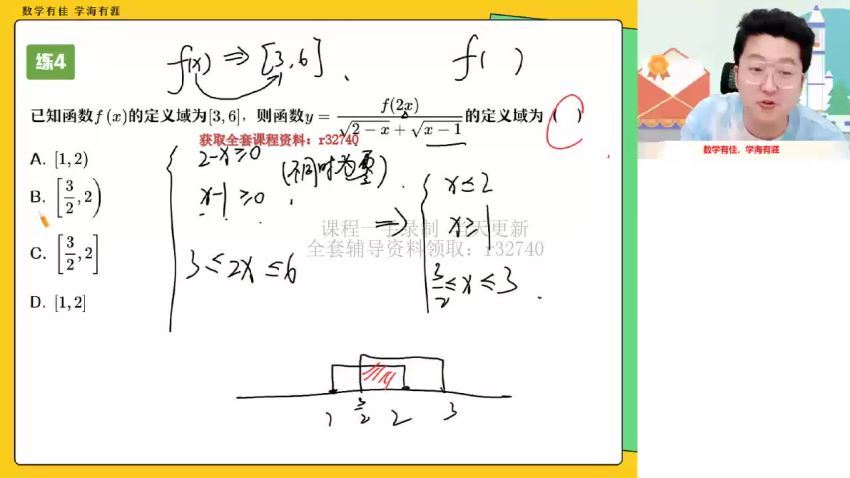 数学有佳 学海有涯
练4
f(x) ⇒ [3,6]
f( )
已知函数f(x)的定义域为[3,6],则函数y = f(2x)/(√(2−x) + √(x−1))的定义域为( )
获取全套课程资料:r32740
A. [1,2)
B. [3/2,2)
C. [3/2,2]
D. [1,2]
2−x≥0
x−1≥0
(不同时为零)
3≤2x≤6
⇒
x≤2
x≥1
3/2≤x≤3
课程一手录制 当天更新
全套辅导资料领取:r32740
1 3/2 2 3
数学有佳,学海有涯